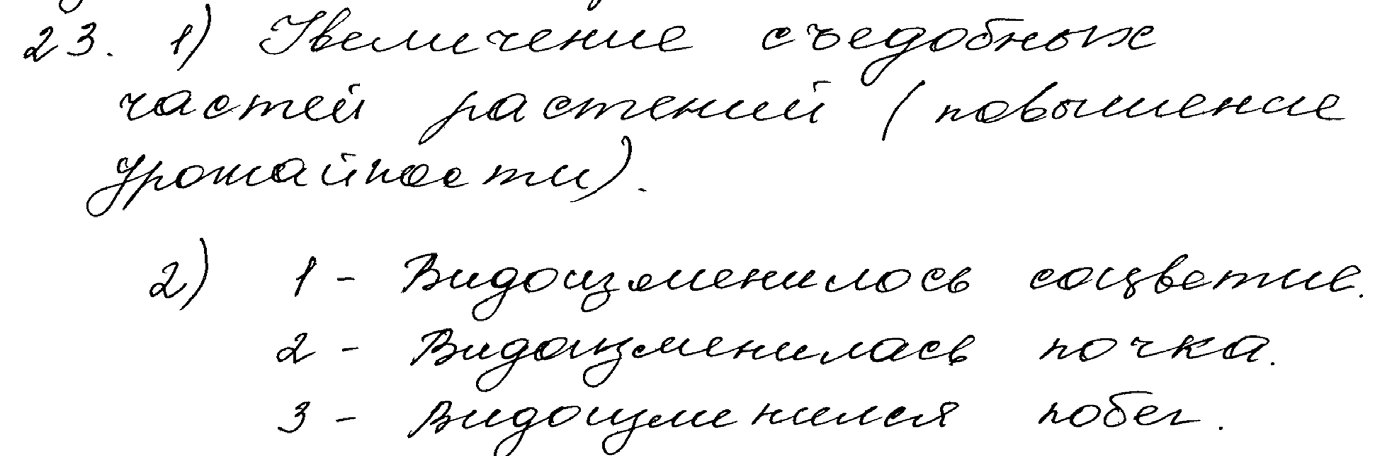 23. 1) Увеличение съедобных
частей растений (повышение
урожайности).
2) 1 - Видоизменилось соцветие.
2 - Видоизменилась почка.
3 - Видоизменился побег.